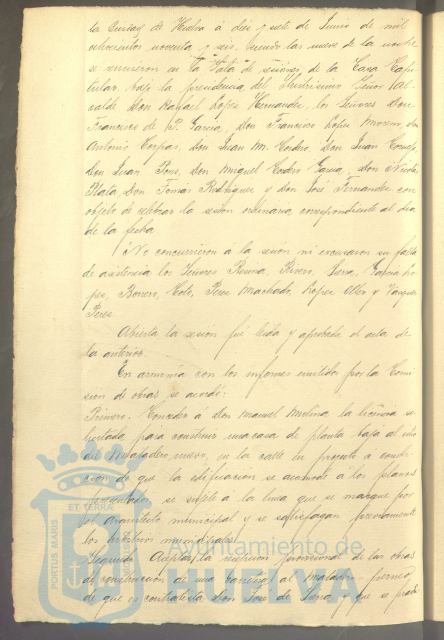 la Ciudad de Huelva á diez y siete de Junio de mil
ochocientos noventa y seis, siendo las nueve de la noche
se reunieron en la Sala de sesiones de la Casa Capi-
tular, bajo la presidencia del Ilustrisimo Señor Al-
calde Don Rafael Lopez Hernandez, los Señores Don
Francisco de P. Garcia, Don Francisco Lopez Moreno, Don
Antonio Don Juan M. Cordero, Don Juan Cornejo,
Don Juan Pons, Don Miguel Cordero Garcia, Don Nicolas
Plata, Don Tomás Rodriguez y Don José Fernandez con
objeto de celebrar la sesion ordinaria correspondiente al dia
de la fecha
No concurrieron á la sesión ni excusaron su falta
de asistencia los Señores Rivero, Serra, Lo-
pez, Borrero, Soto, Perez Machado, Lopez y Vazquez
Perez
Abierta la sesión fué leida y aprobada el acta de
la anterior.
En armonia con los informes emitidos por la Comi-
sion de obras se acordó:
Primero. Conceder á Don Manuel Molina la licencia so-
licitada para construir una casa de planta baja al sitio
del Matadero nuevo, en la calle en proyecto á condi-
cion de que la edificacion se acomode á los planos
presentados, se sujete á la linea que se marque por
el Arquitecto municipal y se satisfagan previamente
los arbitrios municipales.
Segundo. Aceptar la recepcion provisional de las obras
de construccion de una
de que es contratista Don José de y que se
PORTUS MARIS ET TERRÆ
Ayuntamiento de
HUELVA